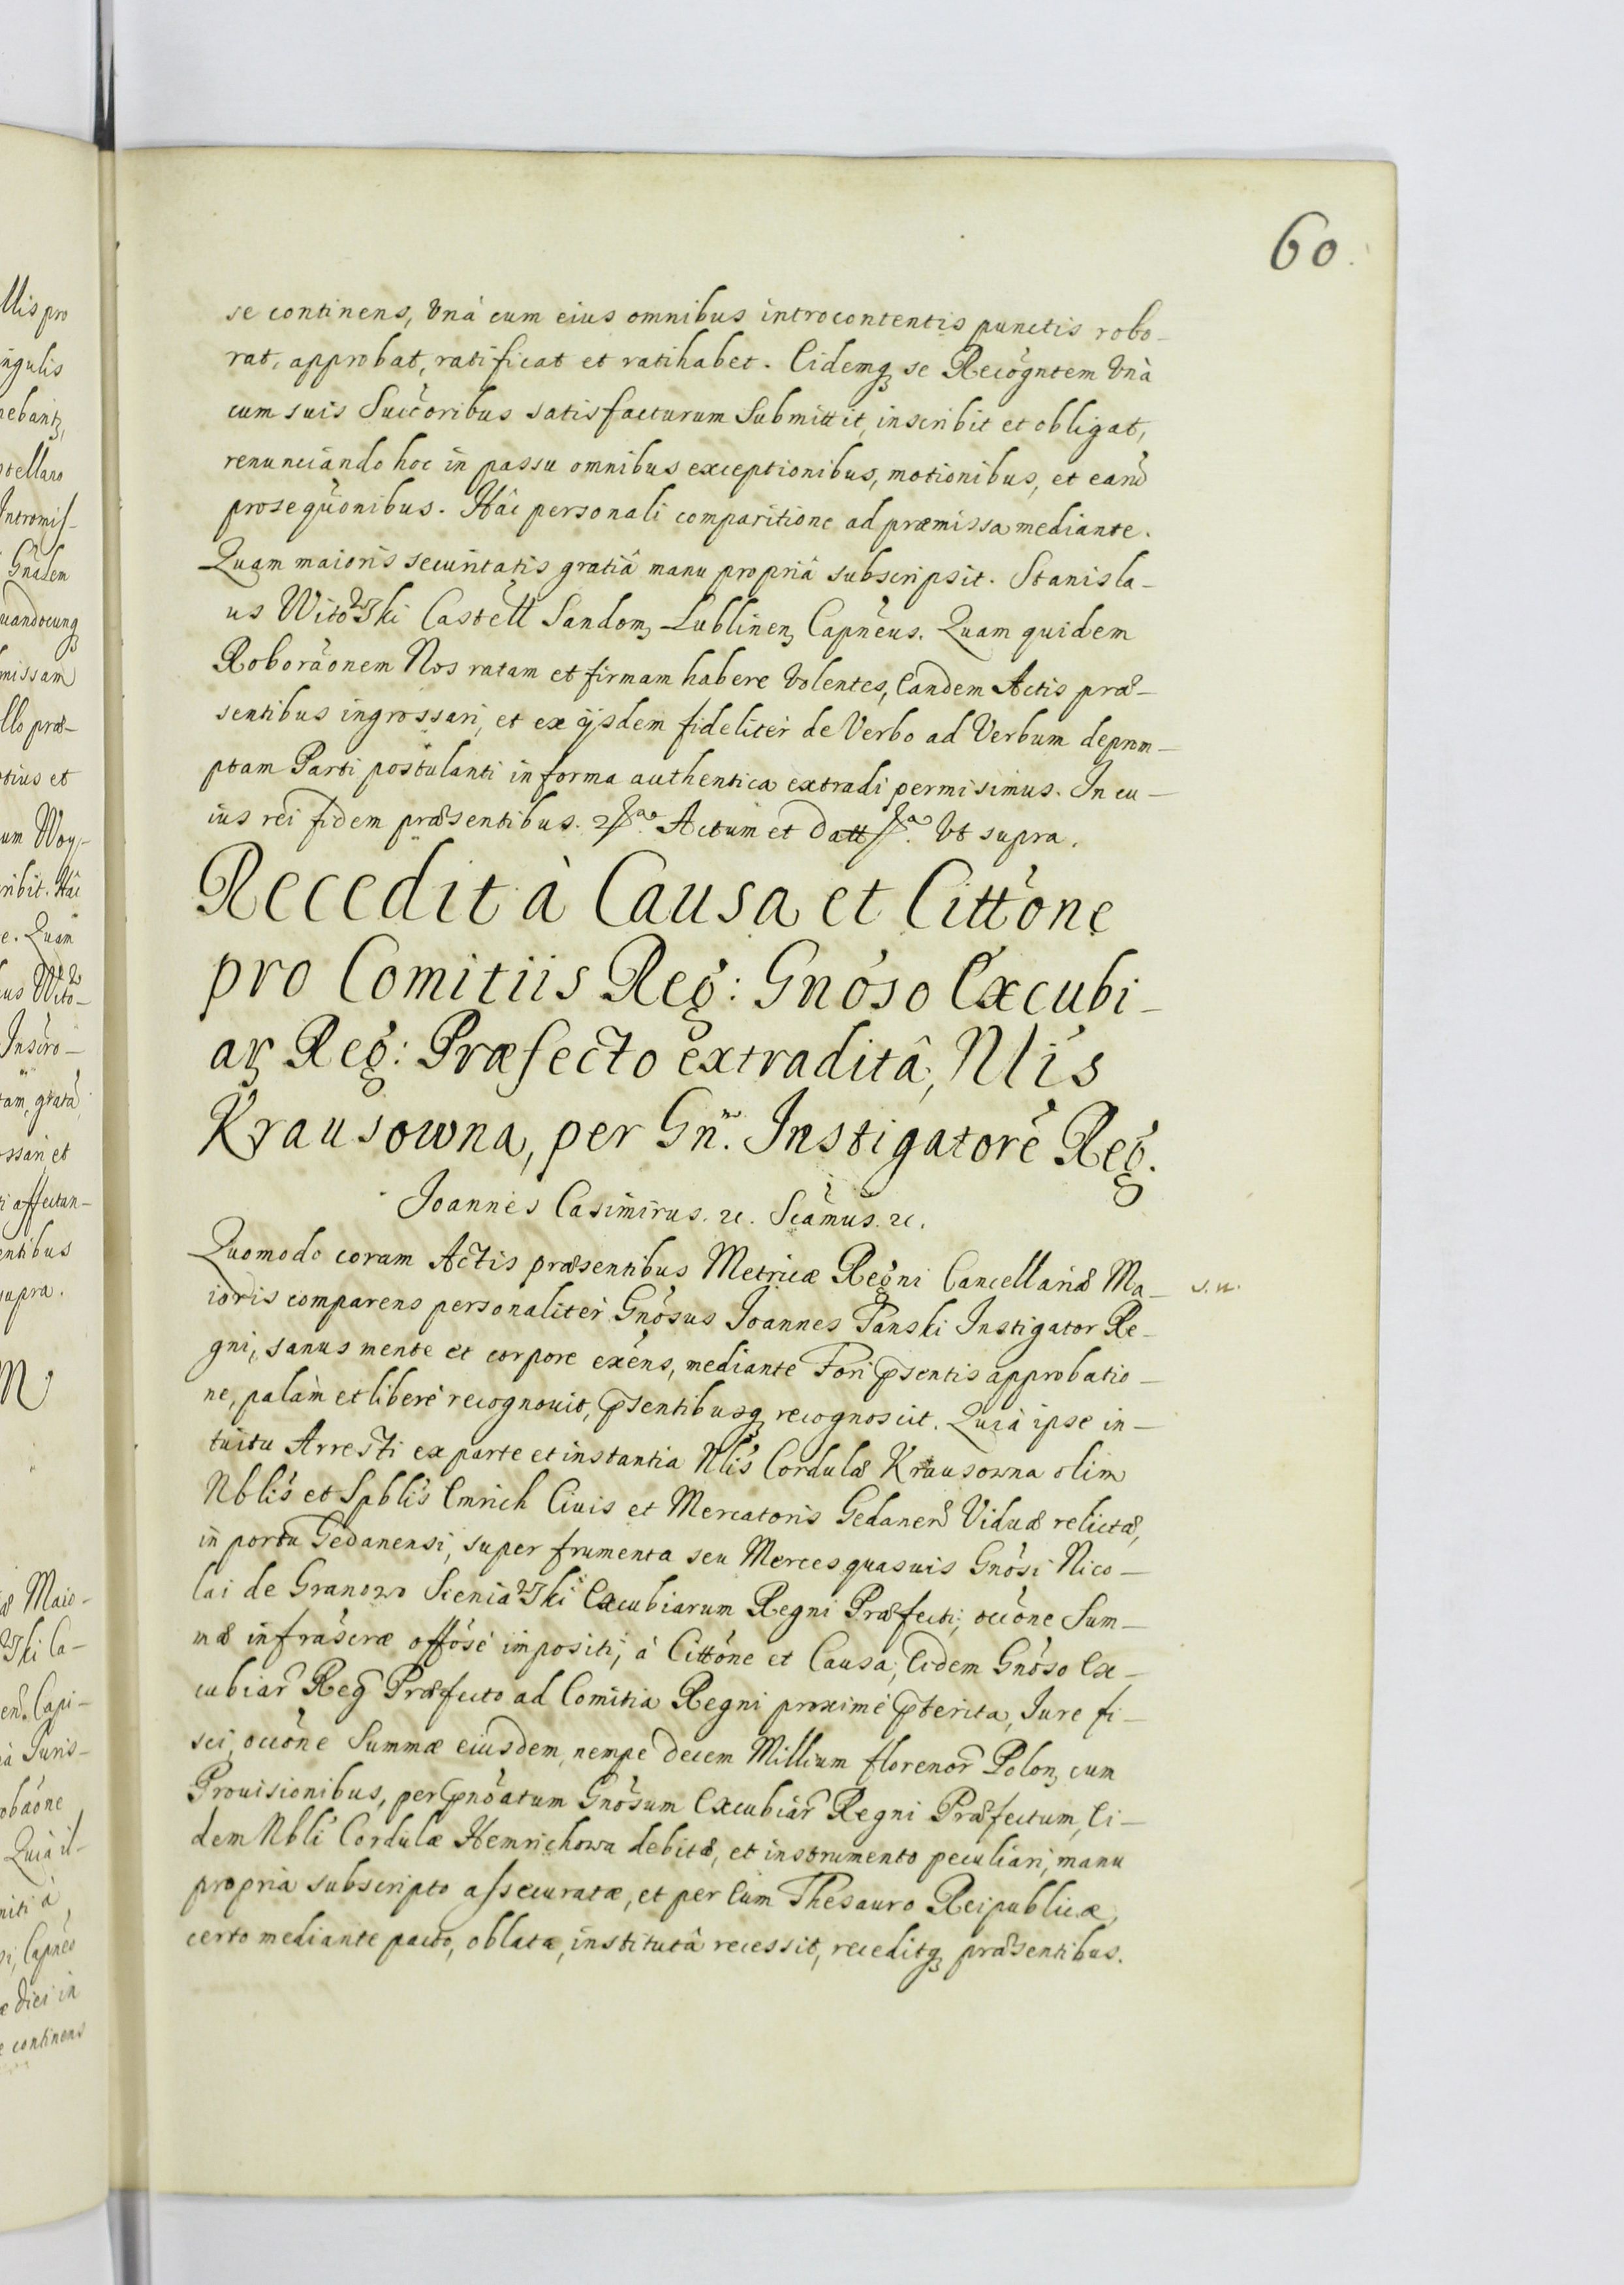 60.
se continens, Vnà cum eius omnibus introcontentis punctis robo-
rat, approbat, ratificat et ratihabet. Eidemq3 se Recögntem Vnà
cum suis Succ̃oribus satisfacturum Submittit, inscribit et obligat,
renunciando hoc in passu omnibus exceptionibus, motionibus, et earũ
proseqũonibus. Hâc personali comparitione ad præmissa mediante.
Quam maioris securitatis gratiâ manu propriâ subscripsit. Stanisla-
us Witowski Castell Sandom, Lublinen, Capñeus. Quam quidem
Roborãonem Nos ratam et firmam habere Volentes, Eandem Actis præ-
sentibus ingrossari, et ex ijsdem fideliter de Verbo ad Verbum deprom-
ptam Parti postulanti in forma authentica extradi permisimus. In cu-
ius rei fidem præsentibus. Actum et Datt Vt supra.
Recedit à Causa et Citt̃one
pro Comitiis Reg: Gnoso Excubi-
ar Reg: Præfecto extraditâ, Nlis
Krausowna, per Gn. Instigatorẽ Reg.
Joannes Casimirus. &c. Scamus. &c.
Quomodo coram Actis præsentibus Metricæ Regni Cancellariæ Ma-
s. n.
ioris comparens personaliter Gnosus Joannes Panski Instigator Re-
gni, sanus mente et corpore exens, mediante Fori psentis approbatio-
ne, palàm et liberè recognouit, psentibusq3 recognoscit. Quià ipse in-
tuitu Arresti ex parte et instantia Nlis Cordulæ Krausowna olim
Nblis et Spblis Emrich Ciuis et Mercatoris Gedanen Viduæ relictæ,
in portu Gedanensi, super frumenta seu Merces quasuis Gnosi Nico-
lai de Granow Sieniawski Excubiarum Regni Præfecti, occ̃one Sum-
mæ infrascræ offose impositi, à Citt̃one et Causa, Eidem Gnoso Ex-
cubiar Reg Præfecto ad Comitia Regni proximè pterita, Jure fi-
sci, occ̃one Summæ eiusdem, nempe decem Millium florenor Polon, cum
Prouisionibus, per pnoatum Gnosum Excubiar Regni Præfectum, Ei-
dem Nbli Cordulæ Hemrichowa debitæ, et instrumento peculiari, manu
propria subscripto assecuratæ, et per Eum Thesauro Reipublicæ,
certo mediante pacto, oblatæ, institutâ recessit, receditq3 præsentibus.